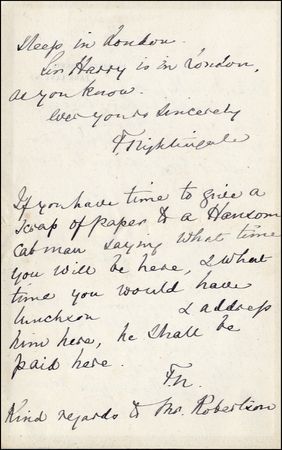 sleep in London.
Sir Harry is in London,
as you know.
ever yours sincerely
F. Nightingale
If you have time to give a
scrap of paper to a Hansom
Cab man saying what time
you will be here, & what
time you would have
luncheon & address
him here, he shall be
paid here.
F.N.
Kind regards to Mr. Robertson